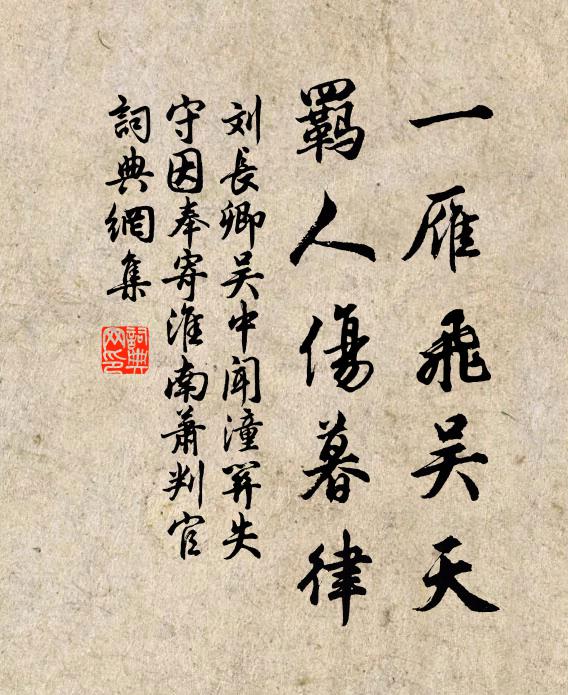 一雁飛吴天
羈人傷暮律
刘長卿吴中闻潼関失
守因奉寄淮南萧判官
詞典網集
詞典
网印